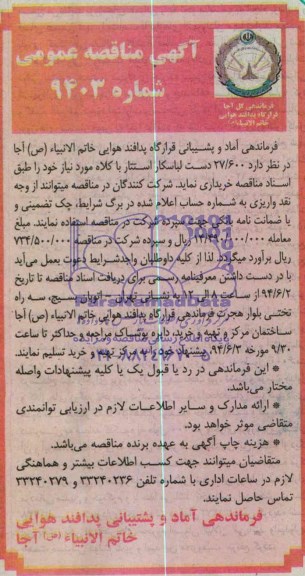 آگهی مناقصه عمومی
شماره ۹۴۰۳
فرماندهی کل آجا
قرارگاه پدافند هوایی
خاتم الانبیاء
فرماندهی آماد و پشتیبانی قرارگاه پدافند هوایی خاتم الانبیاء (ص) آجا
در نظر دارد ۲۷/۶۰۰ دست لباسکار استتار با کلاه مورد نیاز خود را طبق
اسناد مناقصه خریداری نماید. شرکت کنندگان در مناقصه میتوانند از وجه
نقد واریزی به شماره حساب اعلام شده در برگ شرایط، چک تضمینی و
یا ضمانت نامه بانکی جهت سپرده شرکت در مناقصه استفاده نمایند. مبلغ
معامله ریال و سپرده شرکت در مناقصه ۷۳۴/۵۰۰/۰۰۰
ریال برآورد میگردد. لذا از کلیه داوطلبان واجدشرایط دعوت بعمل می‌آید
با در دست داشتن معرفینامه رسمی برای دریافت اسناد مناقصه تا تاریخ
۹۴/۶/۲ از ساعت به نشانی تهران سه راه
تختی بلوار هجرت فرماندهی قرارگاه پدافند هوایی خاتم الانبیاء (ص) آجا
ساختمان مرکز و تهیه و خرید دایره پوشاک مراجعه و حداکثر تا ساعت
۹/۳۰ مورخه ۹۴/۶/۳ پیشنهاد خود را به مرکز تهیه و خرید تسلیم نمایند.
* این فرماندهی در رد یا قبول یک یا کلیه پیشنهادات واصله
مختار می‌باشد.
* ارائه مدارک و سایر اطلاعات لازم در ارزیابی توانمندی
متقاضی موثر خواهد بود.
* هزینه چاپ آگهی به عهده برنده مناقصه می‌باشد.
متقاضیان میتوانند جهت کسب اطلاعات بیشتر و هماهنگی
لازم در ساعات اداری با شماره تلفن ۳۳۲۴۰۲۳۶ و ۳۳۲۴۰۲۷۹
تماس حاصل نمایند.
فرماندهی آماد و پشتیبانی پدافند هوایی
خاتم الانبیاء (ص) آجا